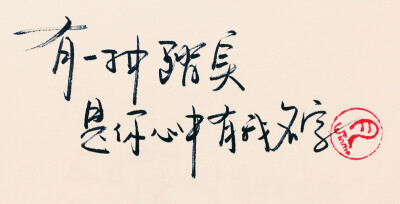 有一种踏实
是你心中有我名字
Winnie